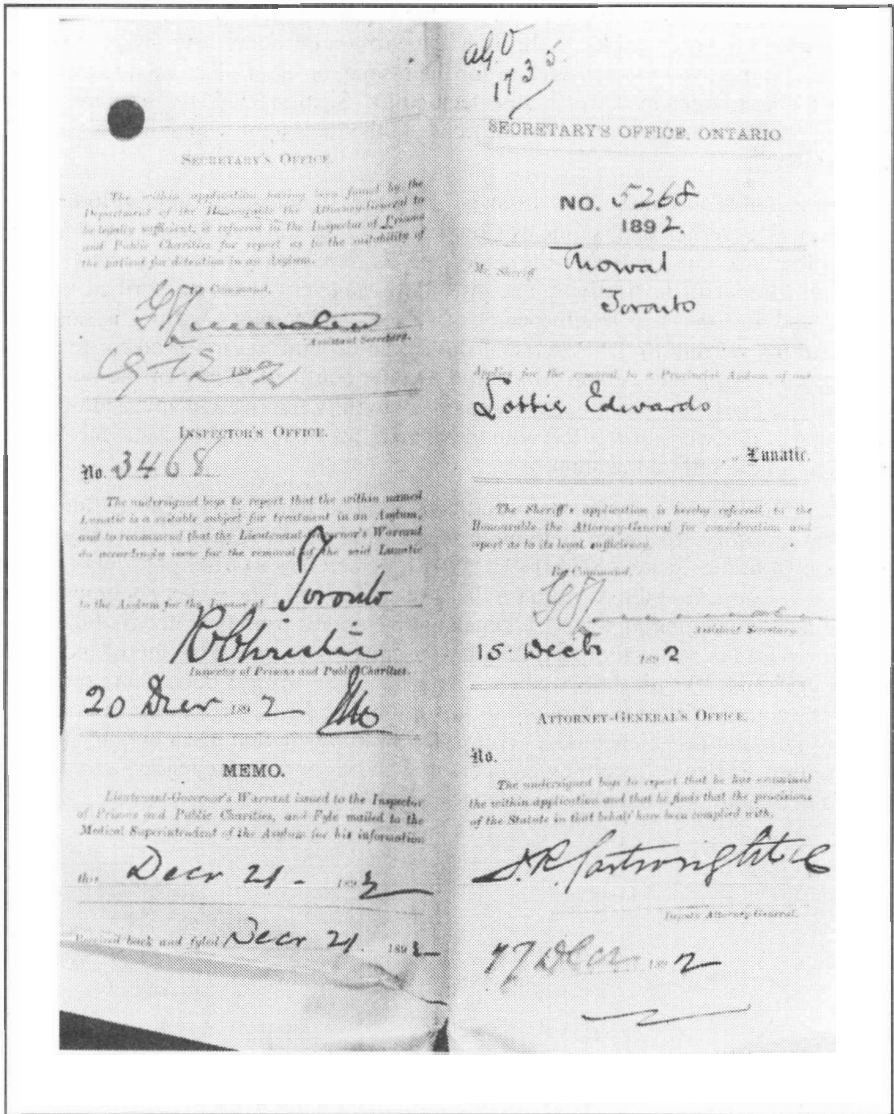 SECRETARY'S OFFICE.
The within application having been found by the
Department of the Honorable the Attorney-General to
be legally sufficient, is referred to the Inspector of Prisons
and Public Charities for report as to the suitability of
the patient for detention in an Asylum.
By Command,
Assistant Secretary.
1892
INSPECTOR'S OFFICE.
No. 3468
The undersigned begs to report that the within named
Lunatic is a suitable subject for treatment in an Asylum,
and to recommend that the Lieutenant-Governor's Warrant
do accordingly issue for the removal of the said Lunatic
to the Asylum for the Insane at Toronto
R Christie
Inspector of Prisons and Public Charities.
20 Decr 1892
MEMO.
Lieutenant-Governor's Warrant issued to the Inspector
of Prisons and Public Charities, and Fyle mailed to the
Medical Superintendent of the Asylum for his information
this Decr 21 - 1892
back and fyled Decr 21. 1892
1735
SECRETARY'S OFFICE, ONTARIO
NO. 5268
1892.
Mr. Sheriff Mowat
Toronto
Applies for the removal to a Provincial Asylum of one
Lottie Edwards
Lunatic.
The Sheriff's application is hereby referred to the
Honourable the Attorney-General for consideration and
report as to its legal sufficiency.
By Command,
Assistant Secretary.
15 Decr 1892
ATTORNEY-GENERAL'S OFFICE.
No.
The undersigned begs to report that he has examined
the within application and that he finds that the provisions
of the Statute in that behalf have been complied with.
J.R. Cartwright
Deputy Attorney-General.
17 Decr 1892